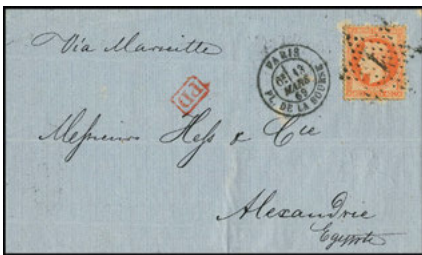 Via Marseille
PARIS
MARS
69
PL. DE LA BOURSE
1
PD
Messieurs Hess & Cie
Alexandrie
Egypte